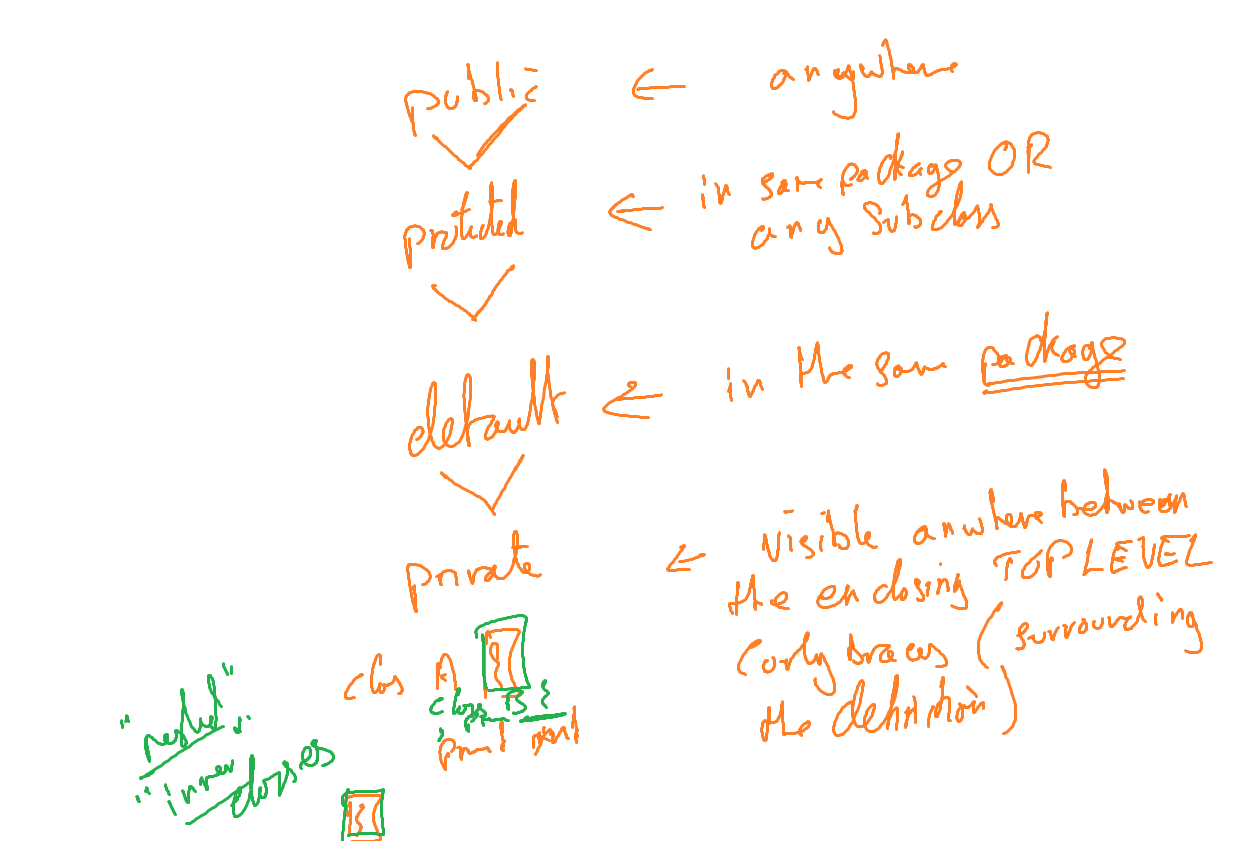 public ← anywhere
protected ← in same package OR
any subclass
default ← in the same package
private ← visible anwhere between
the enclosing TOP LEVEL
curly braces (surrounding
the definition)
class A {
class B {
"nested"
"inner"
classes
}